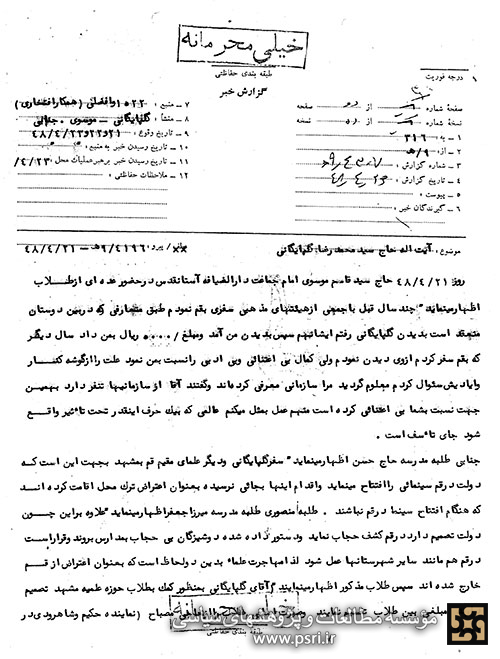 خیلی محرمانه
طبقه بندی حفاظتی
گزارش خبر
۱ درجه فوریت
صفحه شماره از صفحه
نسخه شماره از نسخه
۱ - به: ۳۱۶
۲ - از: ۹/ه
۳ - شماره گزارش:
۴ - تاریخ گزارش:
۵ - پیوست:
۶ - گیرندگان خبر:
۷ - منبع: ۱۵۲۲ (همکار افتخاری)
۸ - منشأ: گلپایگانی - موسوی - جنابی
۹ - تاریخ وقوع: ۲۱ و ۲۲ و ۴۸/۴/۲۳
۱۰ - تاریخ رسیدن خبر به منبع:
۱۱ - تاریخ رسیدن خبر برهبر عملیات محل: ۴/۲۳/
۱۲ - ملاحظات حفاظتی:
موضوع: آیت اله حاج سید محمد رضا گلپایگانی پیرو ۹/۴۱۹۶ه - ۴۸/۴/۲۱
روز ۴۸/۴/۲۱ حاج سید قاسم موسوی امام جماعت دارالضیافه آستانقدس در حضور عده ای از طلاب
اظهار مینماید" چند سال قبل با جمعی از هیئتهای مذهبی سفری بقم نمودم طبق متعارفی که در بین دوستان
منعقد است بدیدن گلپایگانی رفتم ایشانهم سپس بدیدن من آمد ومبلغ/۰۰۰ ریال بمن داد سال دیگر
که بقم سفر کردم از وی دیدن نمودم ولی کمال بی اعتنائی وبی ادبی را نسبت بمن نمود علت را از گوشه کنار
وایادیش سئوال کردم معلوم گردید مرا سازمانی معرفی کرده اند وگفتند آقا از سازمانیها تنفر دارد بهمین
جهت نسبت بشما بی اعتنائی کرده است منهم عمل بمثل میکنم عالمی که بیک حرف اینقدر تحت تاثیر واقع
شود جای تاسف است.
جنابی طلبه مدرسه حاج حسن اظهار مینماید" سفر گلپایگانی ودیگر علمای مقیم قم بمشهد بجهت این است که
دولت در قم سینمائی را افتتاح مینماید واقدام اینها بجائی نرسیده بعنوان اعتراض ترک محل اقامت کرده اند
که هنگام افتتاح سینما در قم نباشند. طلبه منصوری طلبه مدرسه میرزا جعفر اظهار مینماید"علاوه براین چون
دولت تصمیم دارد در قم کشف حجاب نماید ودستور داده شده دوشیزگان بی حجاب بمدارس بروند وقرار است
در قم هم مانند سایر شهرستانها عمل شود لذا مهاجرت علماء بدین ولحاظ است که بعنوان اعتراض از قم
خارج شده اند سپس طلاب مذکور اظهار مینمایند"آقای گلپایگانی بمنظور کمک بطلاب حوزه علمیه مشهد تصمیم
مبلغی بین طلاب مصباح (نماینده حکیم وشاهرودی در
خیلی محرمانه
طبقه بندی حفاظتی
مؤسسه مطالعات و پژوهشهای سیاسی
www.psri.ir